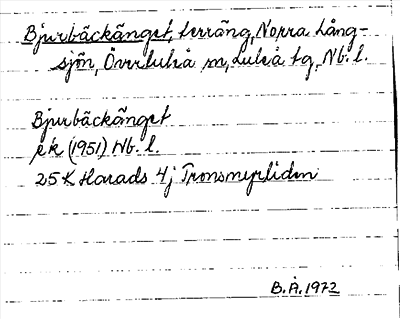 Bjurbäckänget, terräng, Norra Lång-
sjön, Överluleå sn, Luleå tg, Nb. l.
Bjurbäckänget
ek (1951) Nb. l.
25K Harads 4j Tronsmyrliden
B.Å. 1972